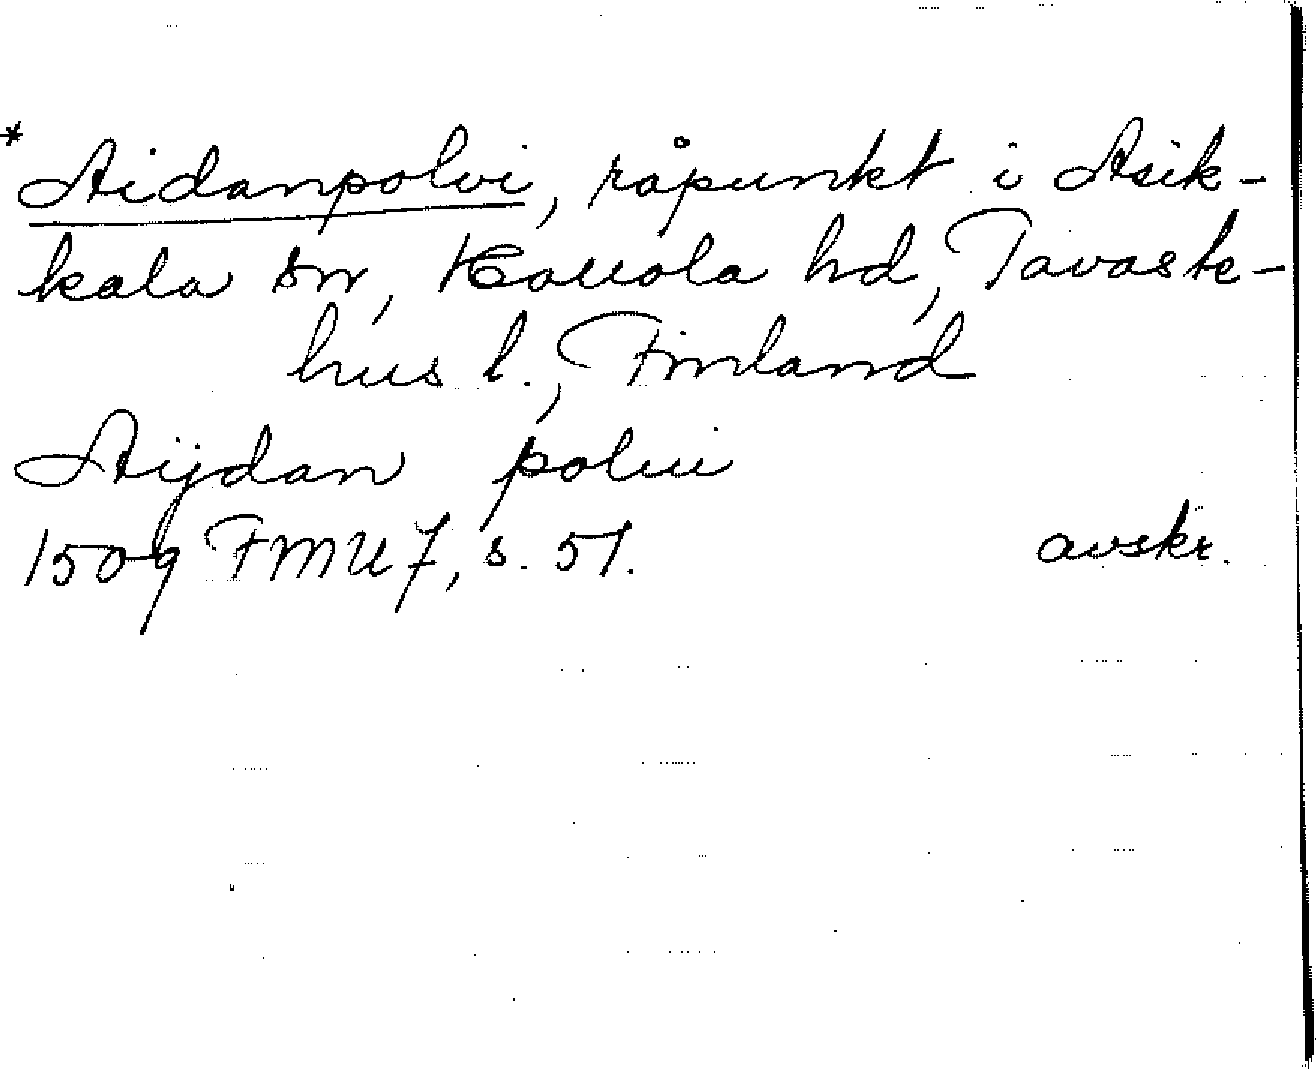 *Aidanpolvi, råpunkt i Asik-
kala sn, Hollola hd, Tavaste-
hus l., Finland
Aijdan polui
1509 FMU 7, s. 51.
avskr.